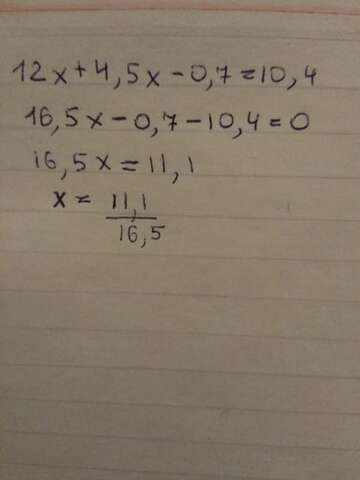 12x+4,5x-0,7=10,4
16,5x-0,7-10,4=0
16,5x=11,1
x= 11,1
16,5